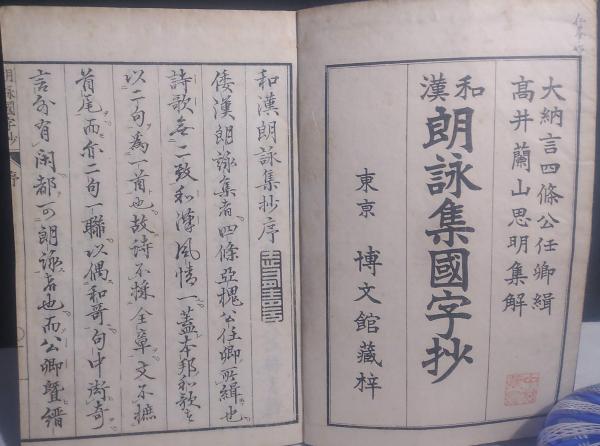 大納言四條公任卿緝
高井蘭山思明集解
和漢
朗詠集國字抄
東京 博文館藏梓
和漢朗詠集抄序
倭漢朗詠集者四條亞槐公任卿所緝也
詩歌無二致和漢風情一蓋本邦和歌
以二句為一首也故詩不採全章文不摭
首尾而亦二句一聯以偶和哥句中衒奇
言有閑都可朗詠者也而公卿暨縉
朗詠國字抄 序